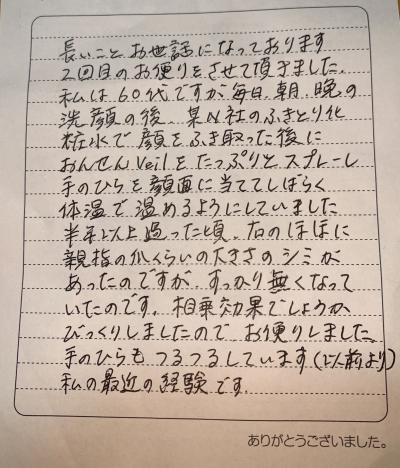 長いことお世話になっております
2回目のお便りをさせて頂きました。
私は60代ですが毎日、朝、晩の
洗顔の後、某N社のふきとり化
粧水で顔をふき取った後に
おんせんVeilをたっぷりとスプレーし
手のひらを顔面に当ててしばらく
体温で温めるようにしていました
半年以上過った頃、右のほほに
親指の爪くらいの大きさのシミが
あったのですが、すっかり無くなって
いたのです。相乗効果でしょうか
びっくりしましたので、お便りしました
手のひらもつるつるしています(以前より)
私の最近の経験です。
ありがとうございました。